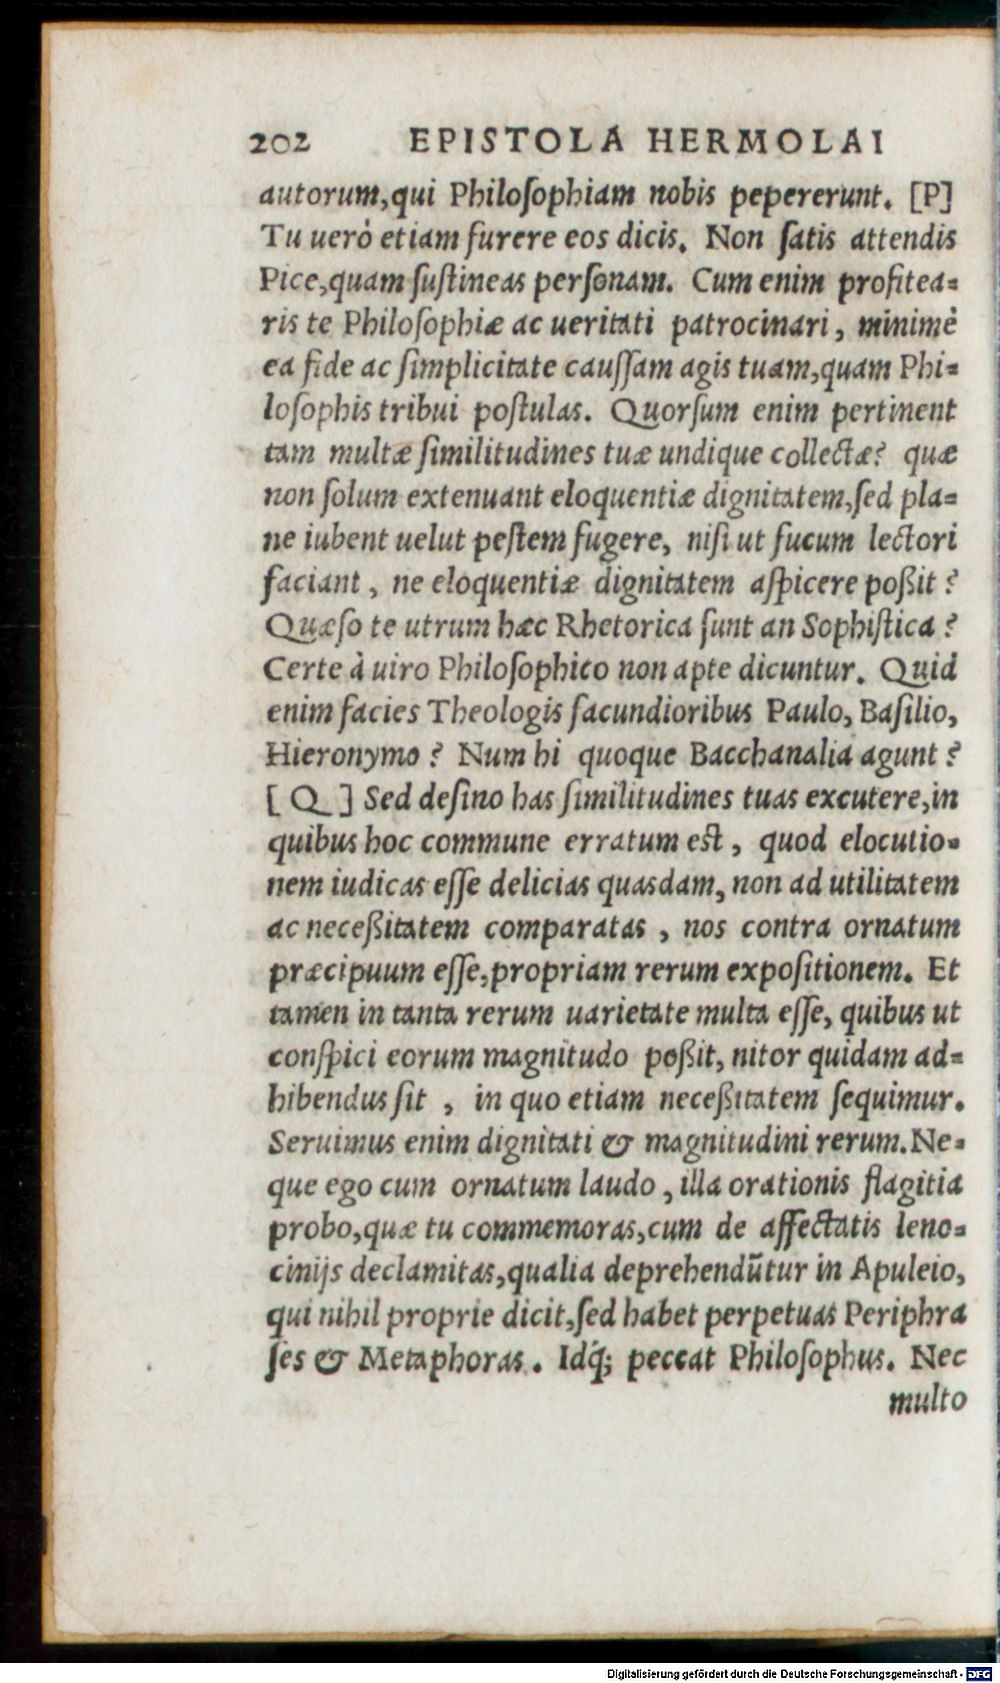 202 EPISTOLA HERMOLAI
autorum,qui Philoſophiam nobis pepererunt. [P]
Tu uerò etiam furere eos dicis. Non ſatis attendis
Pice,quam ſuſtineas perſonam. Cum enim profitea=
ris te Philoſophiæ ac ueritati patrocinari, minimè
ea fide ac ſimplicitate cauſſam agis tuam,quam Phi=
loſophis tribui poſtulas. Quorſum enim pertinent
tam multæ ſimilitudines tuæ undique collectæ? quæ
non ſolum extenuant eloquentiæ dignitatem,ſed pla=
ne iubent uelut peſtem fugere, niſi ut fucum lectori
faciant, ne eloquentiæ dignitatem aſpicere poßit?
Quæſo te utrum hæc Rhetorica ſunt an Sophiſtica?
Certe à uiro Philoſophico non apte dicuntur. Quid
enim facies Theologis facundioribus Paulo, Baſilio,
Hieronymo? Num hi quoque Bacchanalia agunt?
[Q] Sed deſino has ſimilitudines tuas excutere,in
quibus hoc commune erratum eſt, quod elocutio=
nem iudicas eſſe delicias quasdam, non ad utilitatem
ac neceßitatem comparatas, nos contra ornatum
præcipuum eſſe,propriam rerum expoſitionem. Et
tamen in tanta rerum uarietate multa eſſe, quibus ut
conſpici eorum magnitudo poßit, nitor quidam ad=
hibendus ſit, in quo etiam neceßitatem ſequimur.
Seruimus enim dignitati & magnitudini rerum. Ne=
que ego cum ornatum laudo, illa orationis flagitia
probo,quæ tu commemoras,cum de affectatis leno=
cinijs declamitas,qualia deprehendũtur in Apuleio,
qui nihil proprie dicit,ſed habet perpetuas Periphra
ſes & Metaphoras. Idq́; peccat Philoſophus. Nec
multo
Digitalisierung gefördert durch die Deutsche Forschungsgemeinschaft - DFG